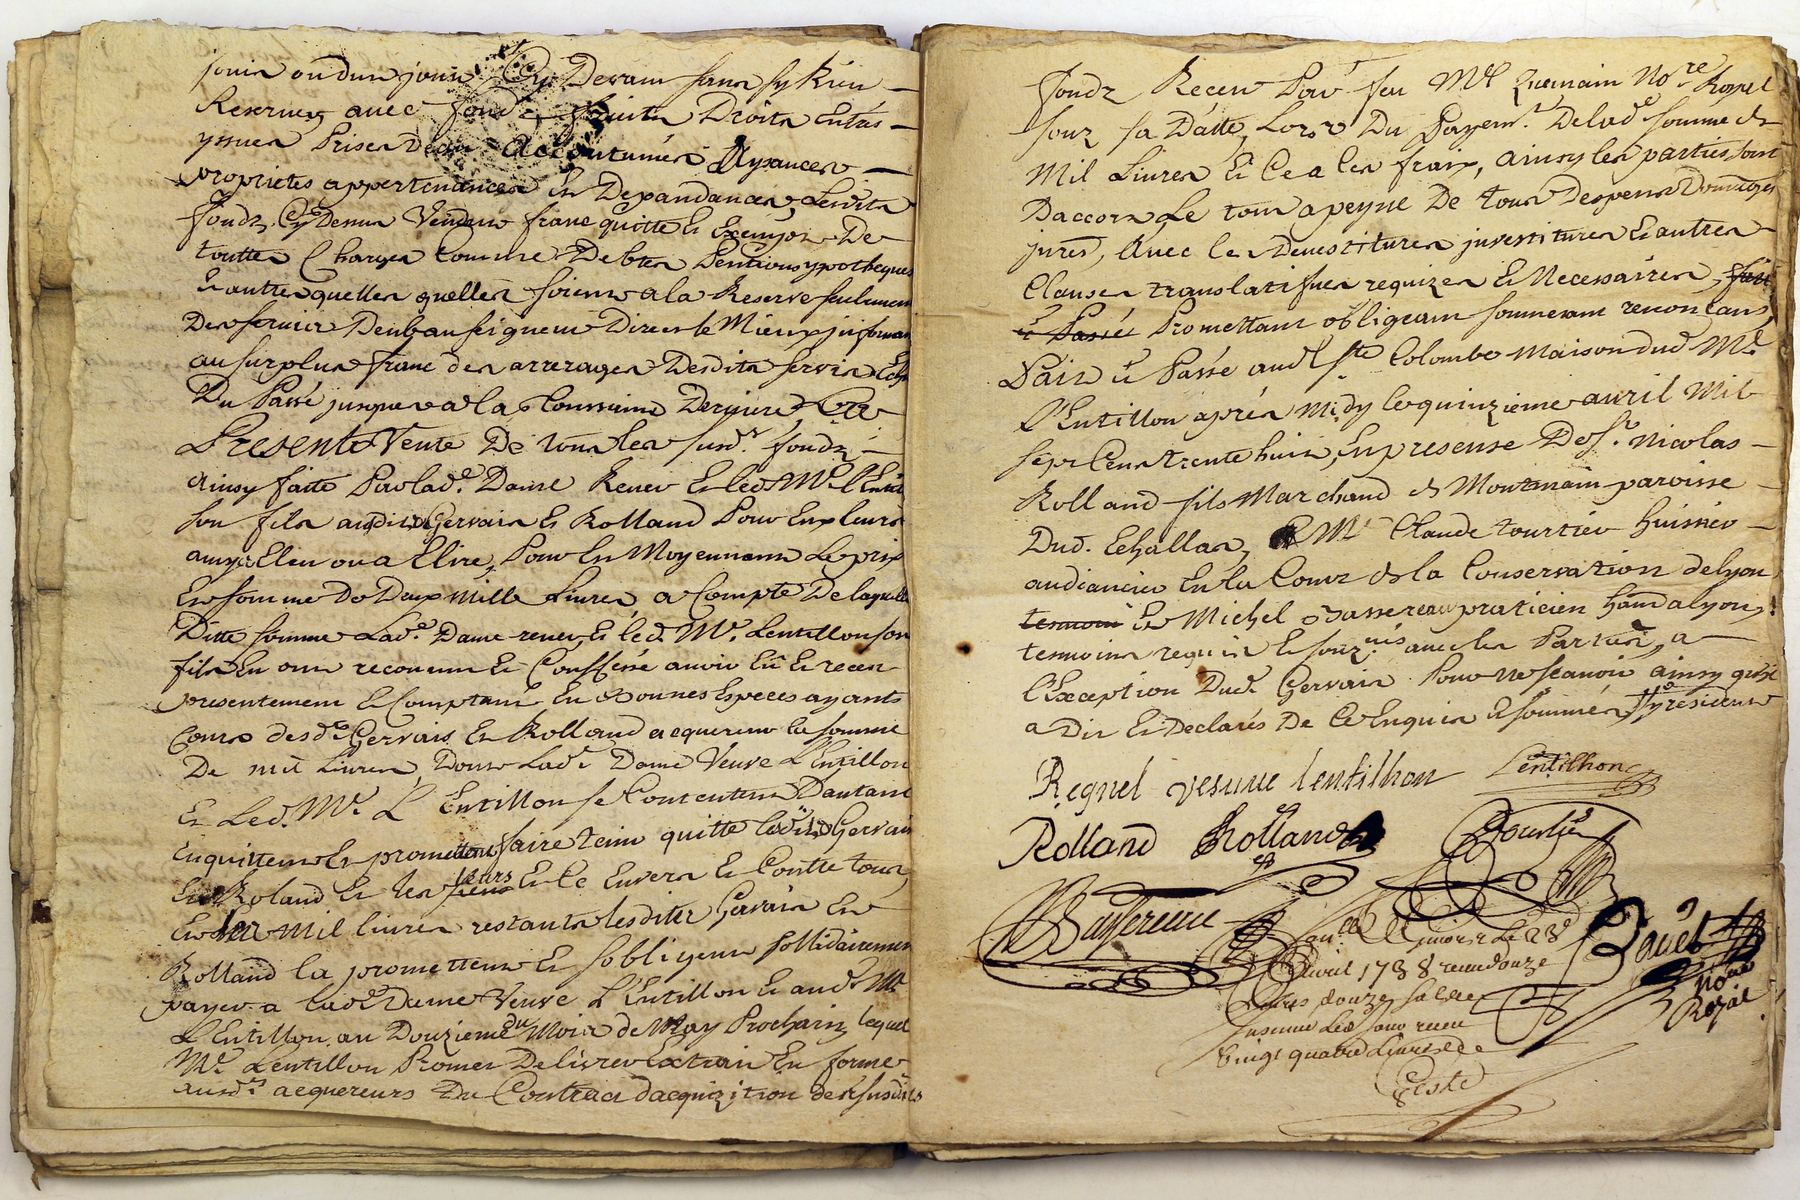 jouir ou dun jouir Cy Devant sans sy Rien
Reserver avec fonds fruits Droits entrés
yssues Prises Deau Accoutumées Aysances
proprietés appertenences Et Dependances, Lesdits
fonds Cy Dessus Vendus franc quitte Et Exempts De
touttes Charges Comme Debtes Pentions ypotheques
Et autres quelles quelles soient a la Reserve seulement
Des servis Deub au seigneur Direct le Mieux informé
au surplus franc des arrerages Desdits servis
Du Passé jusques a la Toussaint Derniere
Presente Vente De tous les susd.ts fonds
ainsy faitte Par lad.e Dame Renev Et led. Me L'Entil
son fils ausdits Gervais Et Rolland Pour Eux leurs
amys Eleu ou a Elire, Pour Et Moyennant Le prix
Et somme De Deux mille Livres a Compte De laquelle
Ditte somme Lad.e Dame renev Et led. Me. Lentillon son
fils En ont reconnu Et Confessé avoir Eü Et receu
presentement Et Comptant En Bonnes Especes ayants
Cours desd.ts Gervais Et Rolland acquereurs la somme
De mil Livres, Dont Lad.e Dame Veuve L'Entillon
Et Led. Me. L'Entillon se Contentent Dautant
Enquittent Et promettent faire tenir quitte lesdits Gervais
Et Roland Et les leurs Et Ce Envers Et Contre tous,
Et les mil livres restants lesdites Gervais Et
Rolland la promettent Et sobligent sollidairement
payer a lad.e Dame Veuve L'Entillon Et aud. Me
L'Entillon au Douzieme du Mois de May Prochain, lequel
Me. Lentillon Promet Delivrer Extrait En forme
ausd.ts acquereurs Du Contract dacquizition des susdits
fonds Receu Par feu Me Not.re Royal
sous sa Datte, Lors Du Payem.t De lad.e somme de
Mil Livres Et Ce a les fraix, ainsy les parties sont
Daccord, Le tout a peyne De tous Despens Dommages
jnrés, Avec les Devestitures jnvestitures Et autres
Clauses translatifves requizes Et Necessaires, fait
et Passé Promettant obligeant soumettant renoncant,
Fait et Passé aud. Ste Colombe Maison dud. Me
L'Entillon aprés Midy le quinzieme avril Mil
sept Cent trente huit, En presence De Sr. Nicolas
Rolland fils Marchand de Montmain paroisse
Dud. Echallas, Et Me Claude tourtier Huissier
audiancier En la Cour de la Conservation de Lyon
tesmoin Et Michel Bassereau praticien Hant a Lyon,
tesmoins requis Et souz.nés avec les Parties, a
l'Exception Dud. Gervais Pour ne scavoir ainsy quil
a Dit Et Declarés De Ce Enquis Et sommé
Regnel vesuue lentilhon Lentilhon
Rolland Rolland Tourtier
Bassereau
avril 1738 receu douze
Livres douze sols
Insinué Led. Jour receu
Vingt quatre Livres
Not.re
Royal